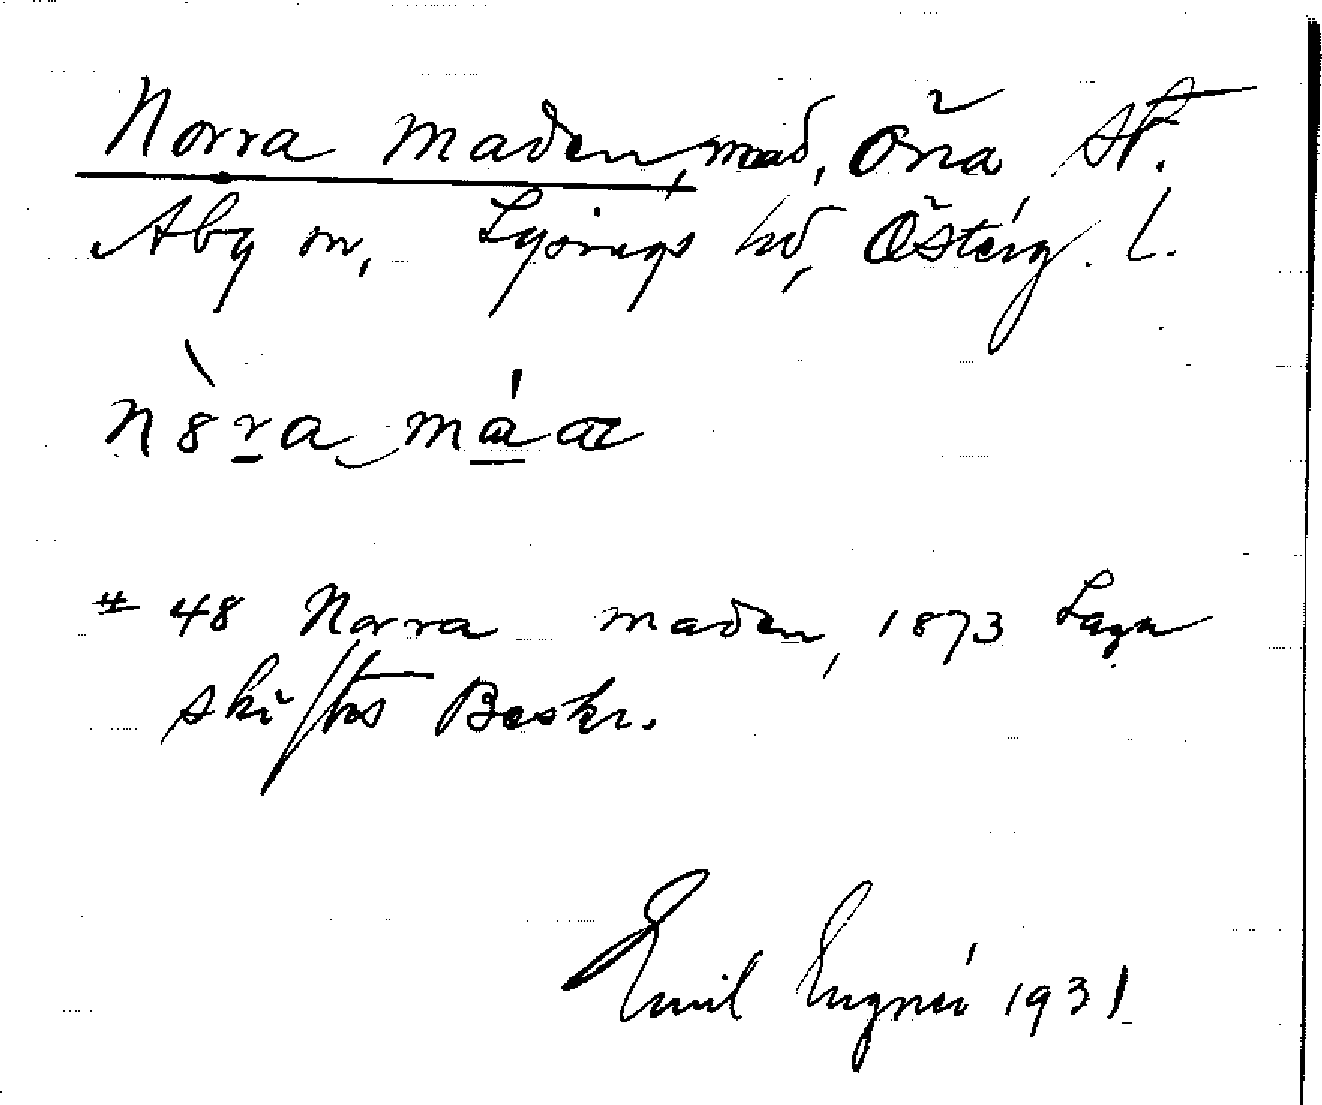 Norra maden, mad, Örra st.
Åby sn, Lysings hd, Österg. l.
n8ra máa
# 48 Norra maden, 1873 Laga
skiftes Beskr.
Emil Engnér 1931